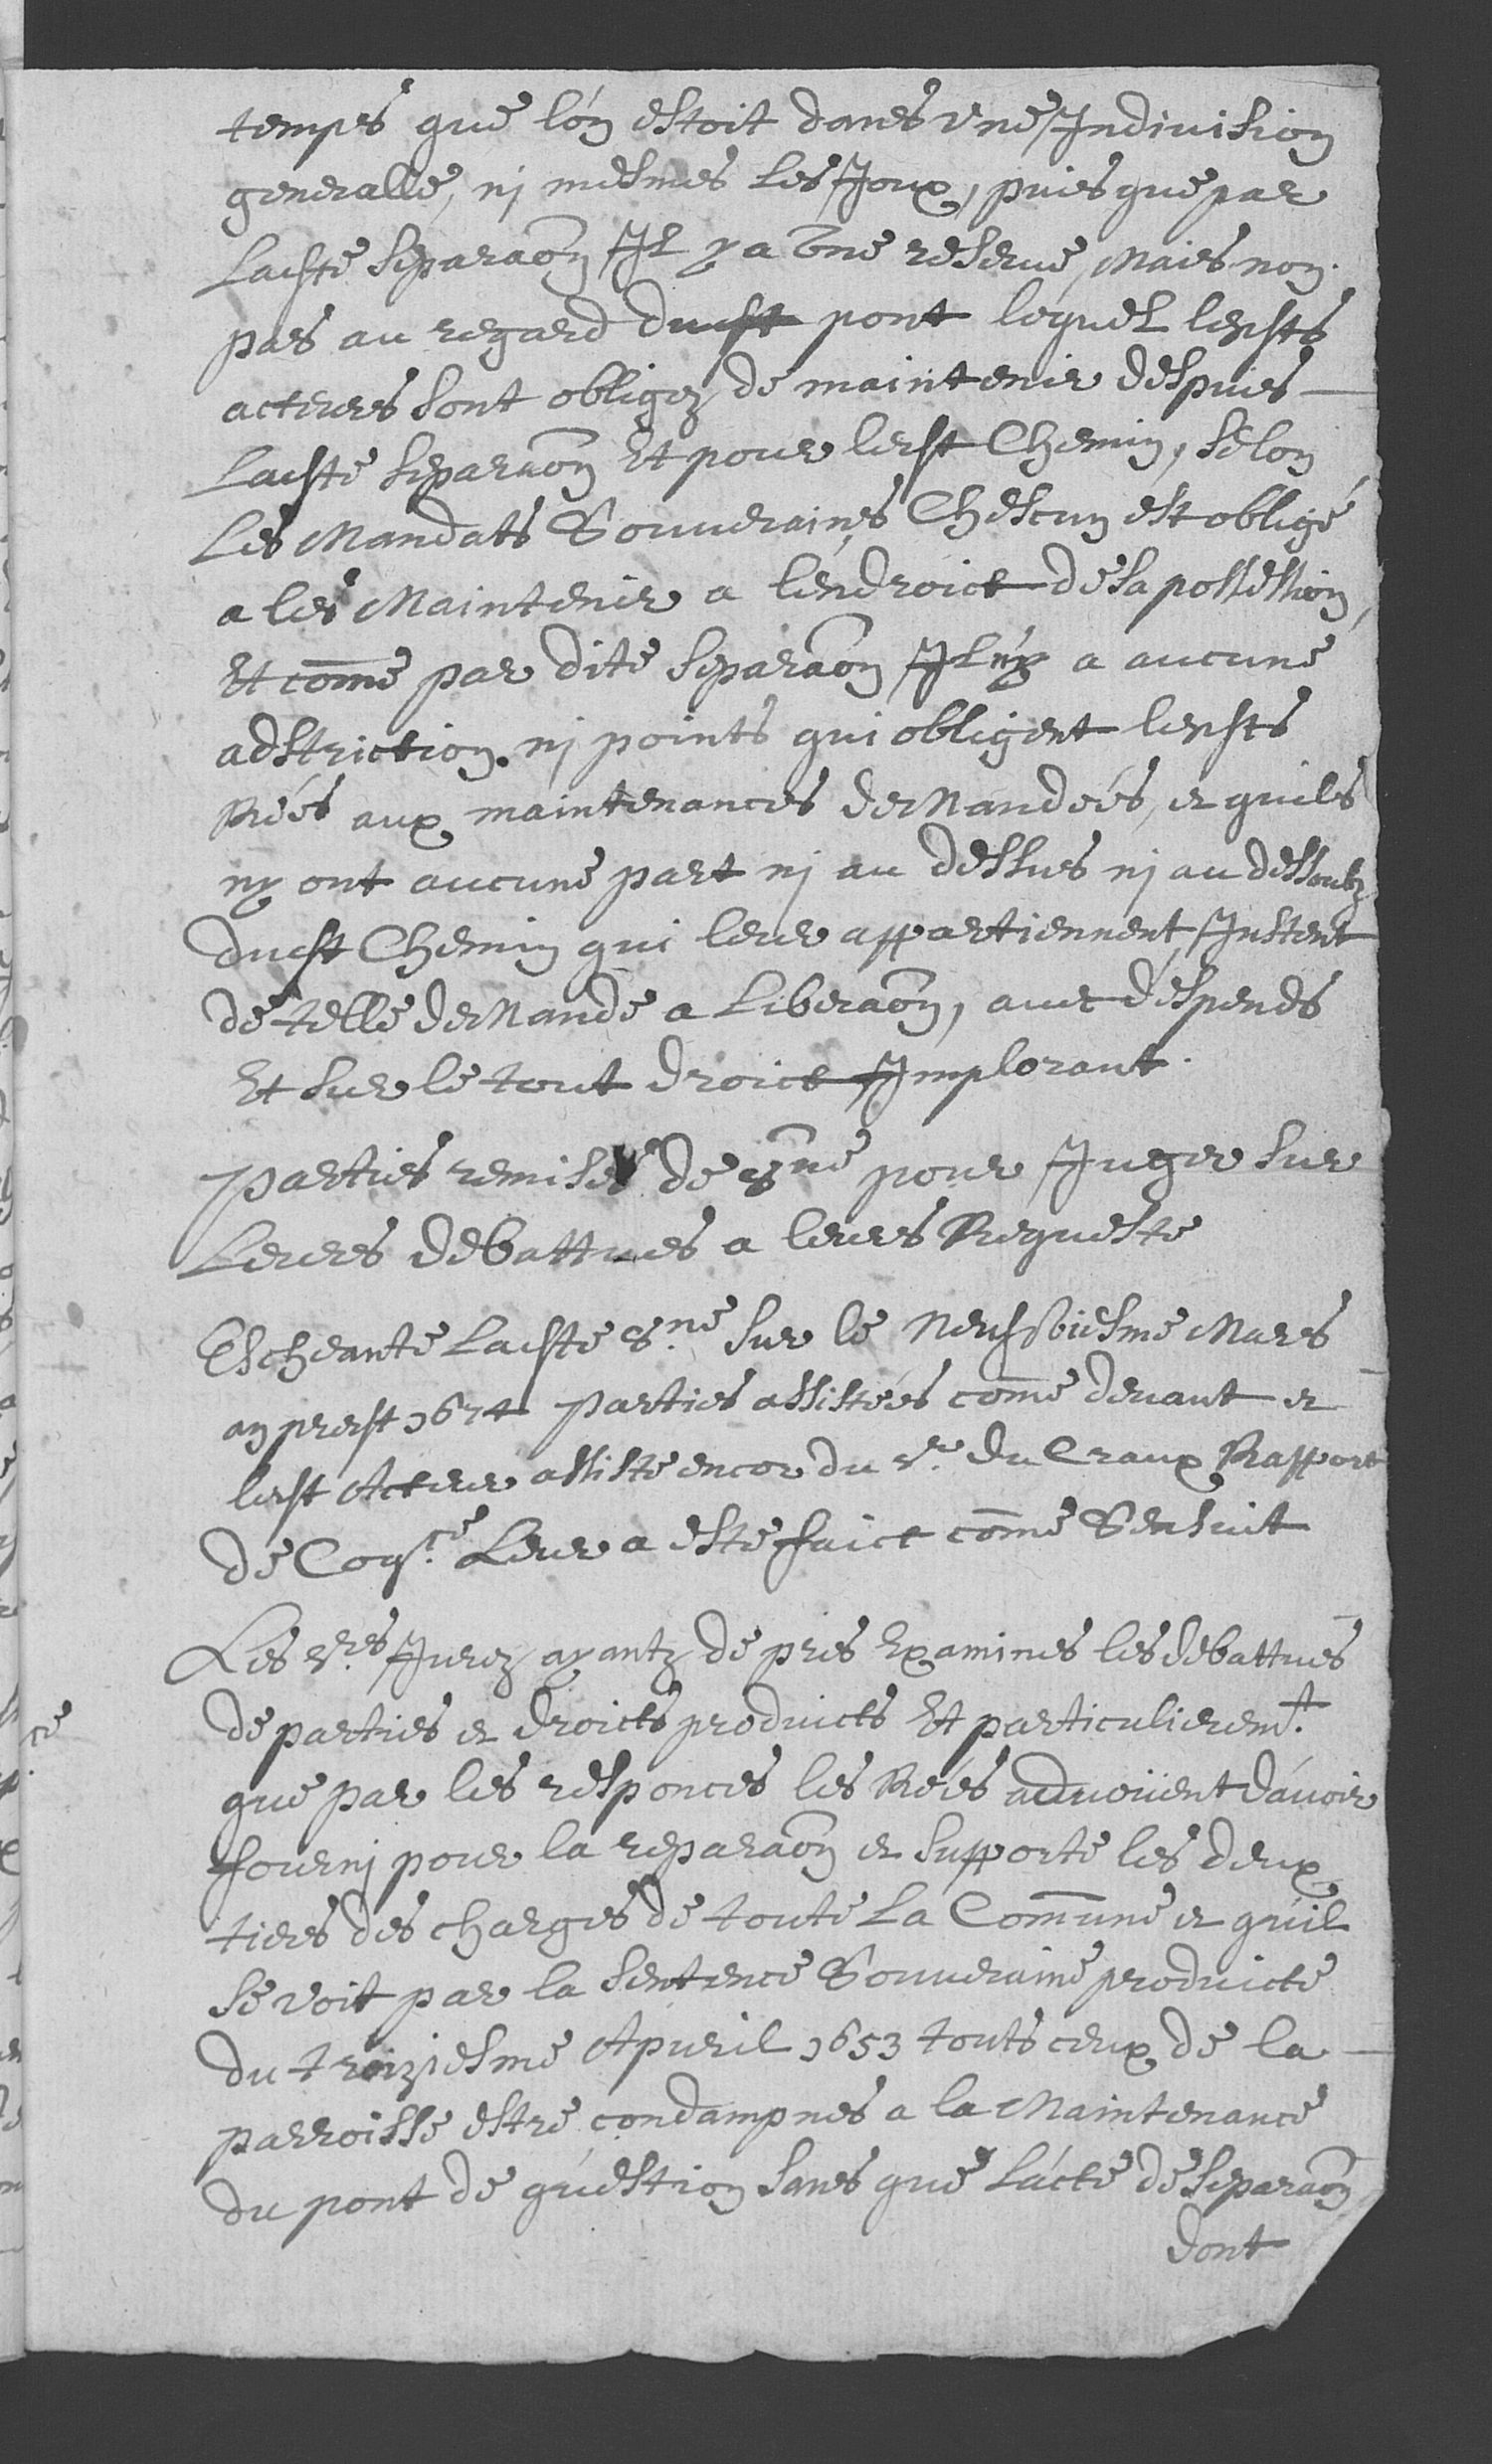 temps que lón estoit dans vne Indiuision
generalle, nj mesmes les Joux, puis que par
lad.te separaōn Il y a vne reserue, Mais non
pas au regard dud.t pont lequel lesd.ts
acteurs sont obligez de maintenir despuis
lad.te separaōn Et pour led.t Chemin, selon
les Mandats Souuerains, Chescun est obligé
a les Maintenir a léndroict de sa possession,
Et com̄e par dite separaōn Il ńy a aucune
adstriction nj points qui obligent lesd.ts
Reés aux maintenances deMandeés, et quils
ny ont aucune part nj au dessus nj au dessoubz
dud.t Chemin qui leur appartiennent, Instent
de telle deMande a Liberaōn, auec despends
Et sur le tout droict Implorant.
Parties remises de 8.ne pour Juger sur
Leurs debattues a leurs Requeste
Escheante lad.te 8.ne sur le Neufuiesme Mars
an pred.t 1674 Parties assisteés com̄e deuant et
led.t Acteur assisté encor du s.r du Craux Rapport
de Cog.ce Leur a esté faict com̄e Sensuit
Les s.rs Jurez ayantz de pres Examines les debattues
de parties et droicts produicts Et particulierem.t
que par les responces les Reés aduoüent dáuoir
fournj pour la reparaōn et supporté les deux
tiers des charges de toute La Com̄une et quil
se voit par la Sentence Souueraine produicte
du troiziesme Apuril 1653 touts ceux de la
parroisse estre condampnes a la Maintenance
du pont de question sans que lácte de separaōn
dont